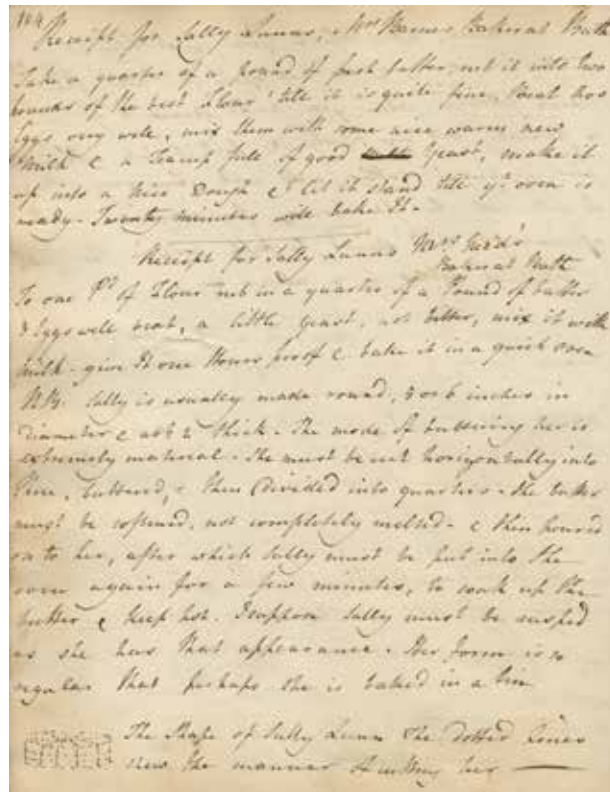 104
Receipt for Sally Lunns, Mrs Barnes Bakeress Bath
Take a quarter of a pound of fresh butter, rub it into two
pounds of the best Flour 'till it is quite fine, Beat two
Eggs very well, mix them with some nice warm new
Milk & a Teacup full of good yeast, make it
up into a nice Dough & let it stand till ye oven is
ready. Twenty minutes will bake it.
Receipt for Sally Lunns Mrs
Bath
To one Pd of Flour rub in a quarter of a Pound of butter
Eggs well beat, a little yeast, not bitter, mix it with
Milk. give it one Hours proof & bake it in a quick oven
NB. Sally is usually made round, 5 or 6 inches in
diameter & abt 2 thick. The mode of buttering her is
extremely material. She must be cut horizontally into
three, buttered, & then divided into quarters. the butter
must be softened, not completely melted. & then poured
on to her, after which Sally must be put into the
oven again for a few minutes, to soak up the
butter & keep hot. I suppose Sally must be rasped
as she has that appearance. Her form is so
regular that perhaps she is baked in a tin
The Shape of Sally Lunn the dotted Lines
shew the manner of cutting her